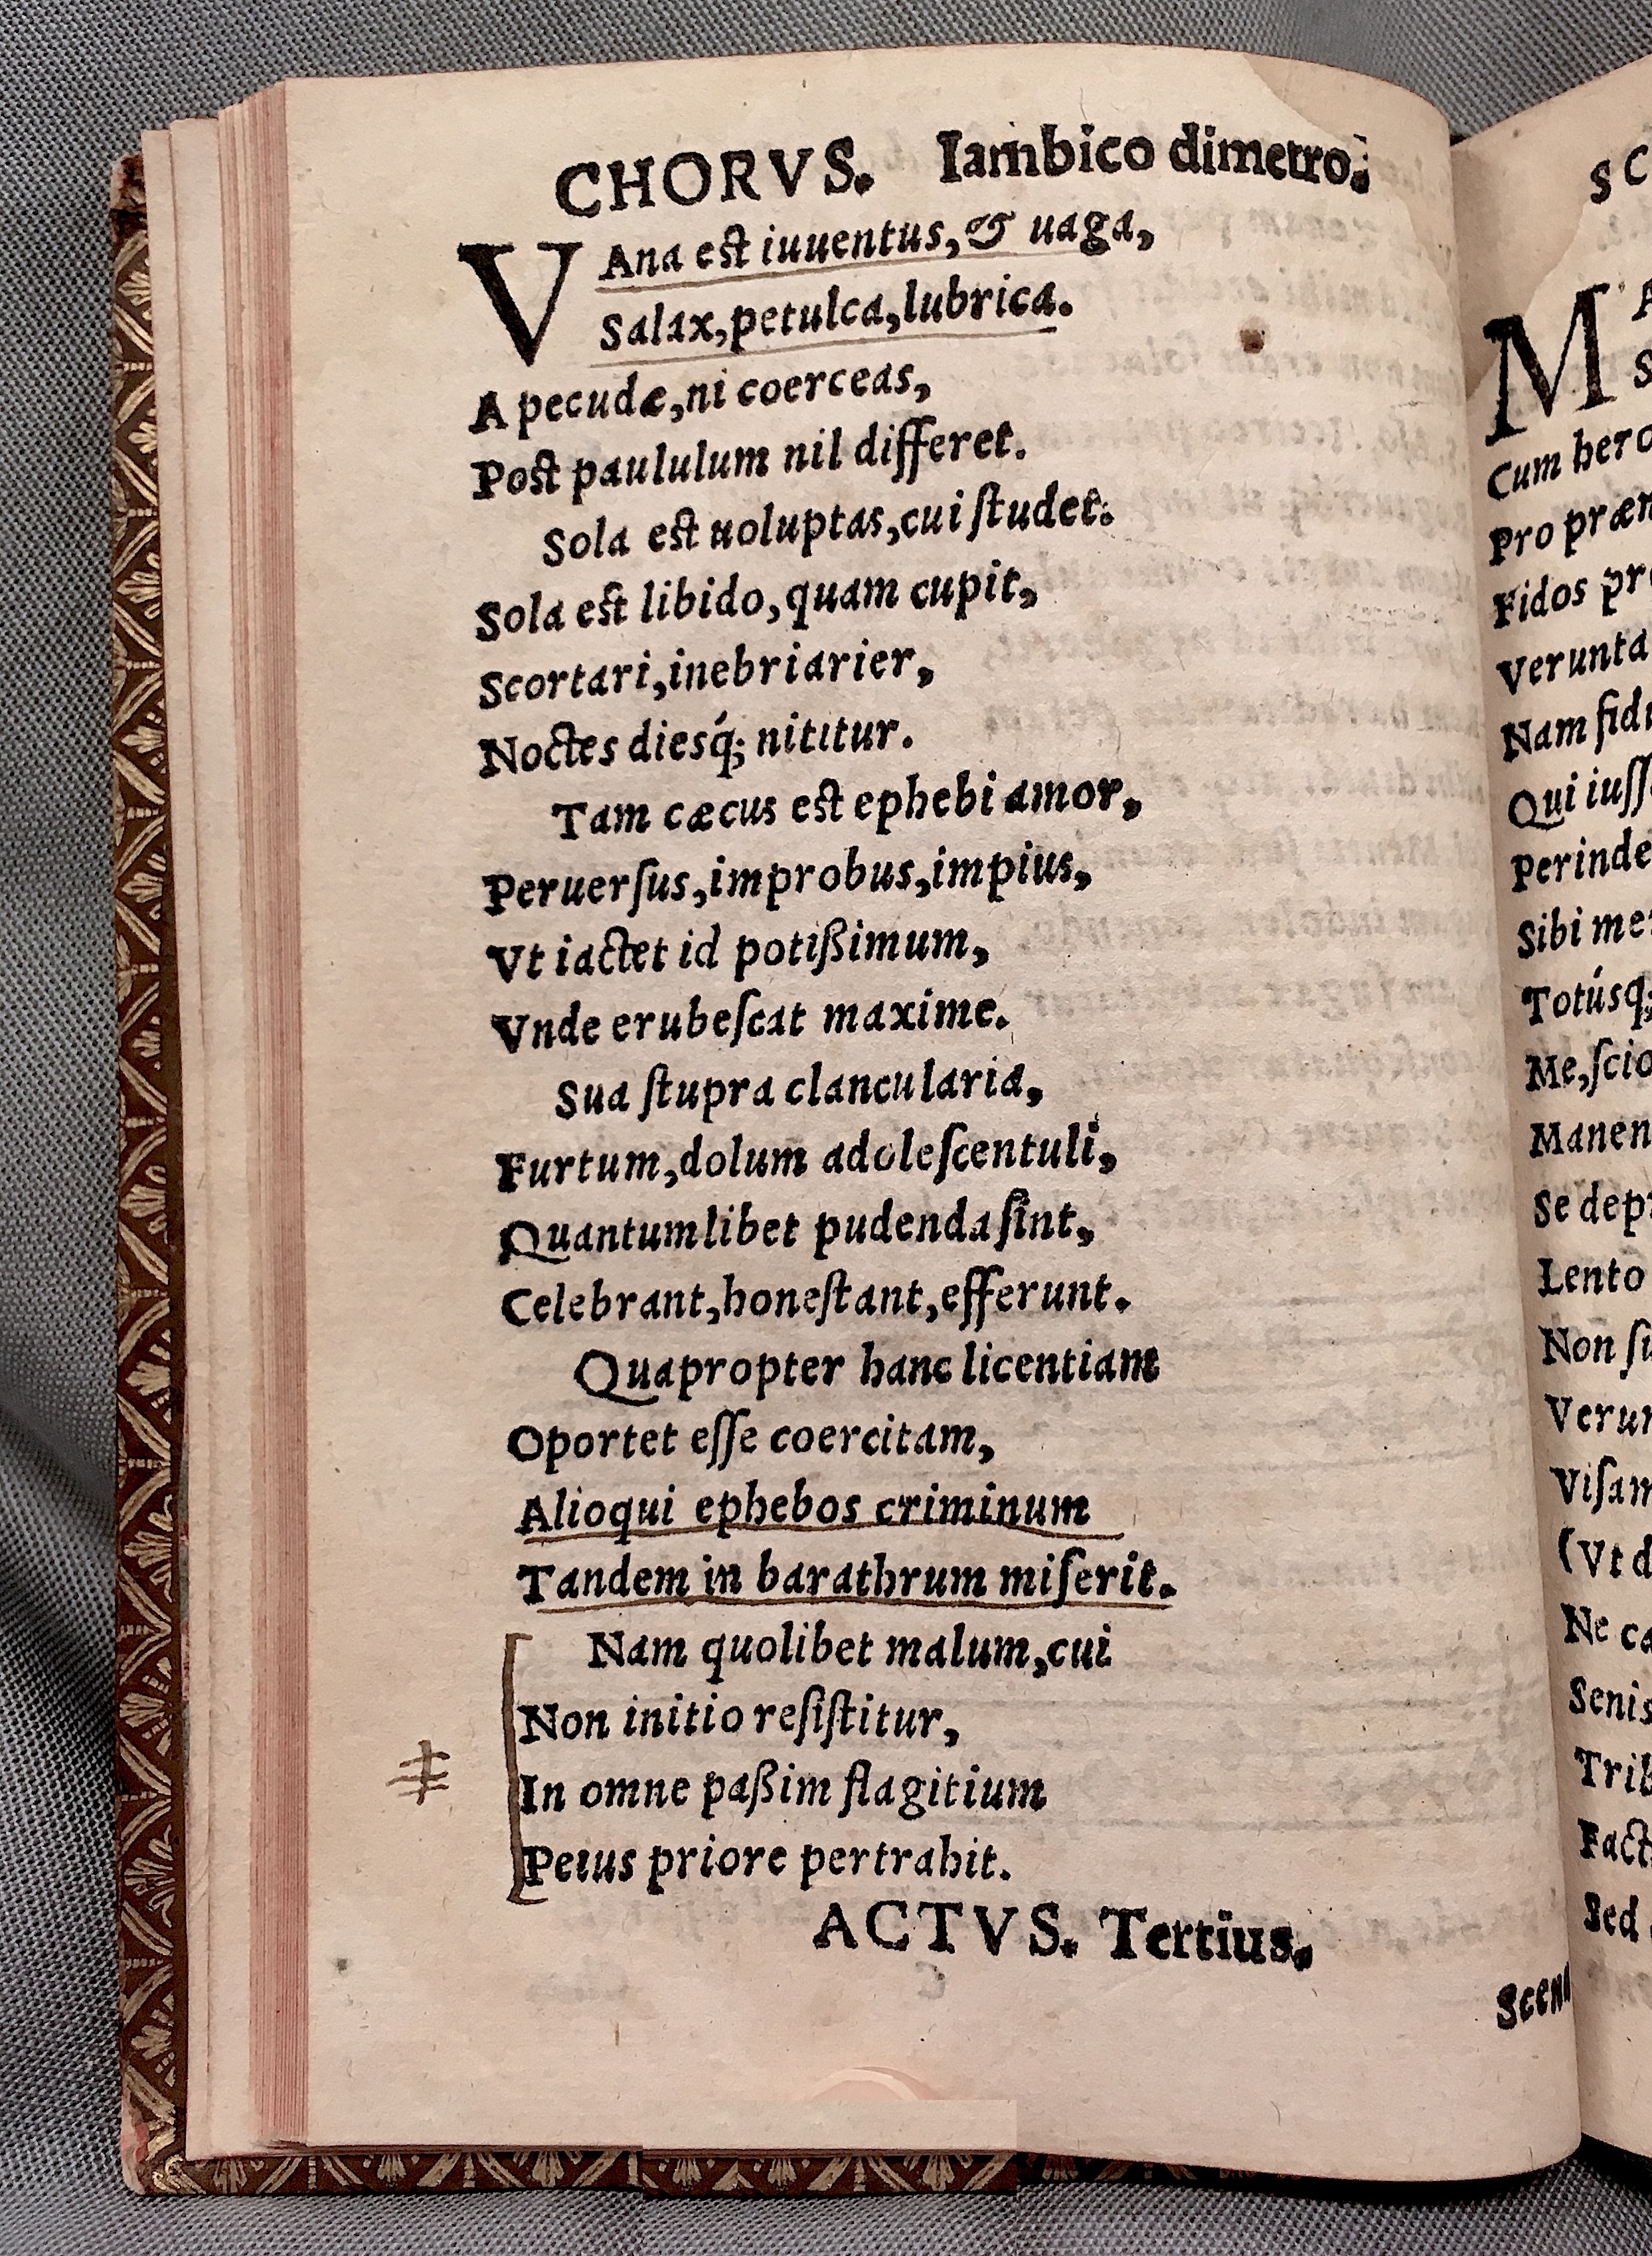 CHORVS. Iambico dimetro.
VAna est iuuentus, & uaga,
Salax, petulca, lubrica.
A pecudæ, ni coerceas,
Post paululum nil differet.
Sola est uoluptas, cui ſtudet:
Sola est libido, quam cupit,
Scortari, inebriarier,
Noctes diesq́; nititur.
Tam cæcus est ephebi amor,
Peruerſus, improbus, impius,
Vt iactet id potißimum,
Vnde erubeſcat maxime.
Sua ſtupra clancularia,
Furtum, dolum adoleſcentuli,
Quantumlibet pudenda ſint,
Celebrant, honeſtant, efferunt.
Quapropter hanc licentiam
Oportet eſſe coercitam,
Alioqui ephebos criminum
Tandem in barathrum miſerit.
Nam quolibet malum, cui
Non initio reſiſtitur,
In omne paßim flagitium
Peius priore pertrahit.
ACTVS. Tertius.
SC
M
S
Cum hero
Pro præm
Fidos pr
Verunta
Nam fid
Qui iuſſ
Perinde
Sibi me
Totúsq;
Me, ſcio
Manen
Se dep
Lento
Non ſu
Verum
Viſam
(Vt d
Ne ca
Senis
Trib
Fact
Sed